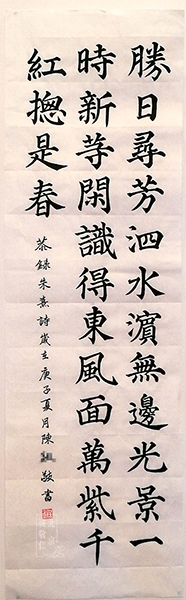 勝日尋芳泗水濱無邊光景一
時新䓁閑識得東風面萬紫千
紅摠是春
恭錄朱熹詩歲在庚子夏月陳敬書